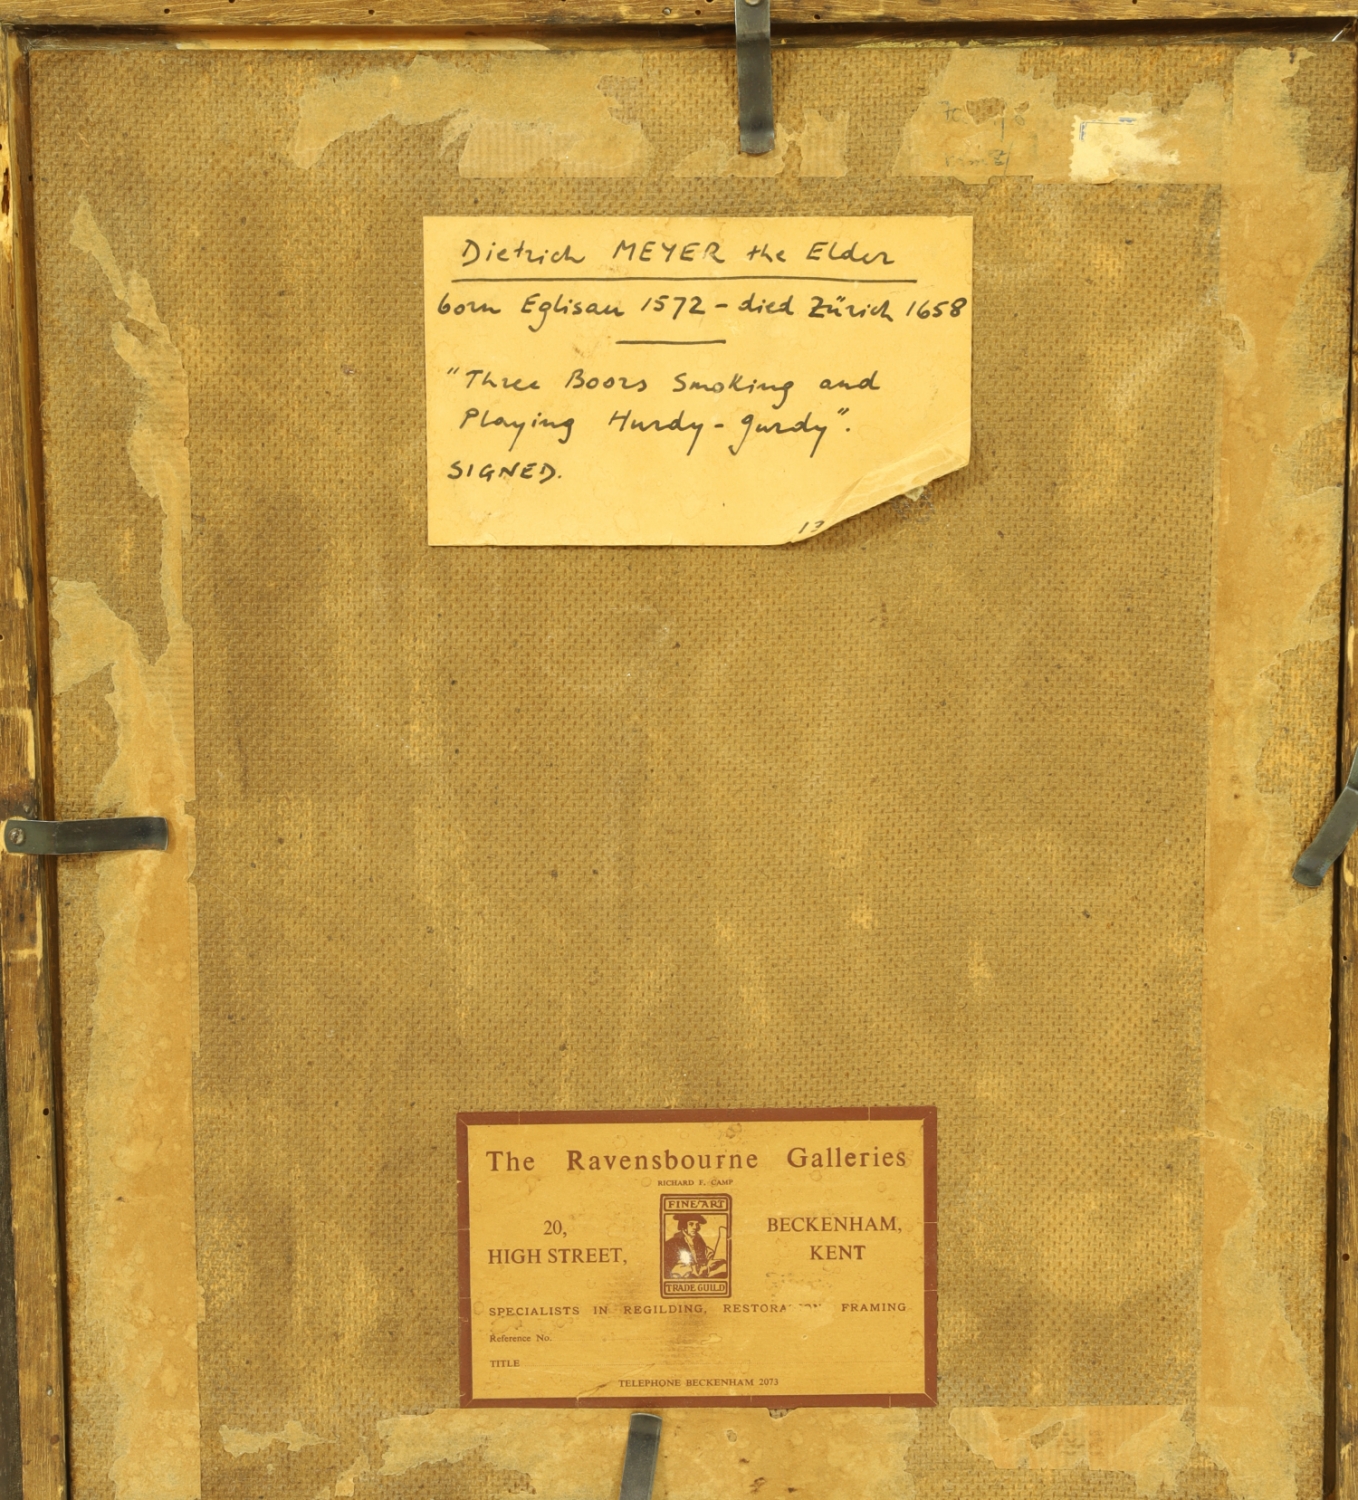 Dietrich MEYER the Elder
born Eglisau 1572 - died Zürich 1658
"Three Boors Smoking and
Playing Hurdy-gurdy".
SIGNED.
13
The Ravensbourne Galleries
RICHARD F. CAMP
FINE ART
20,
HIGH STREET,
BECKENHAM,
KENT
TRADE GUILD
SPECIALISTS IN REGILDING, FRAMING
Reference No.
TITLE
TELEPHONE BECKENHAM 2073